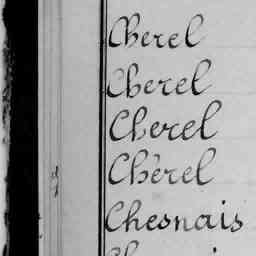 Cherel
Cherel
Cherel
Chèrel
Chesnais